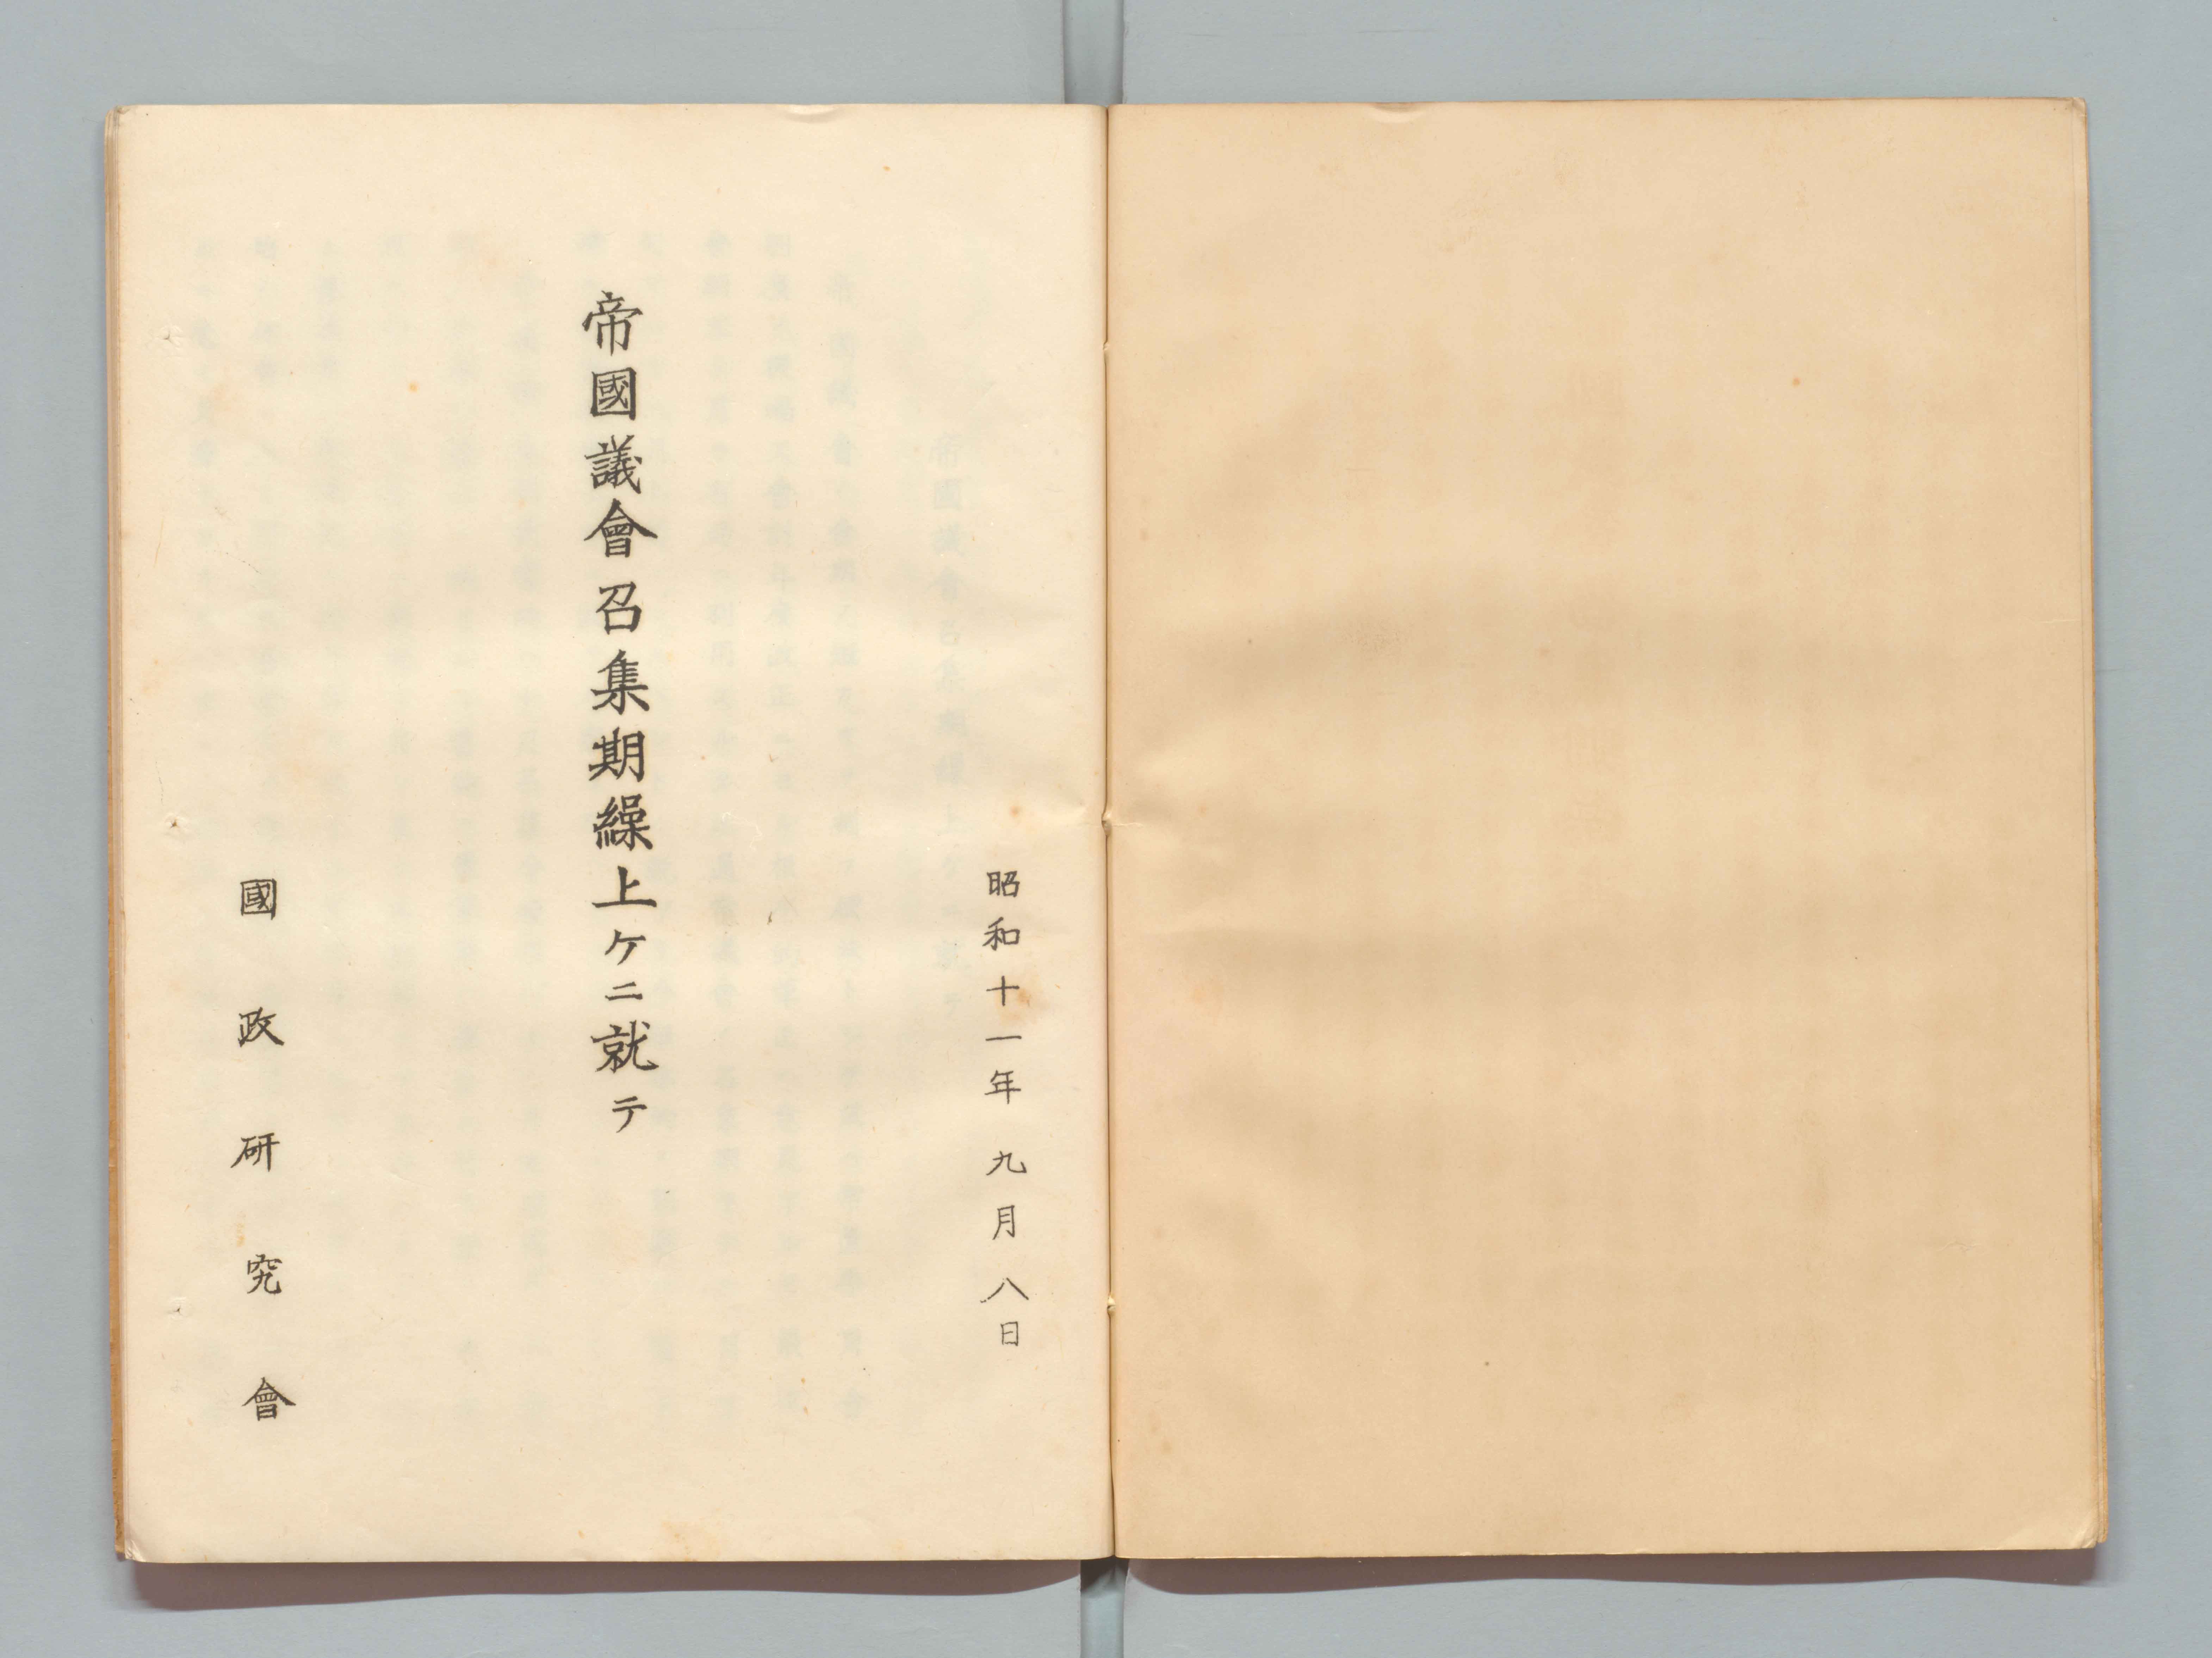 昭和十一年九月八日
帝國議會召集期繰上ケニ就テ
國政研究會